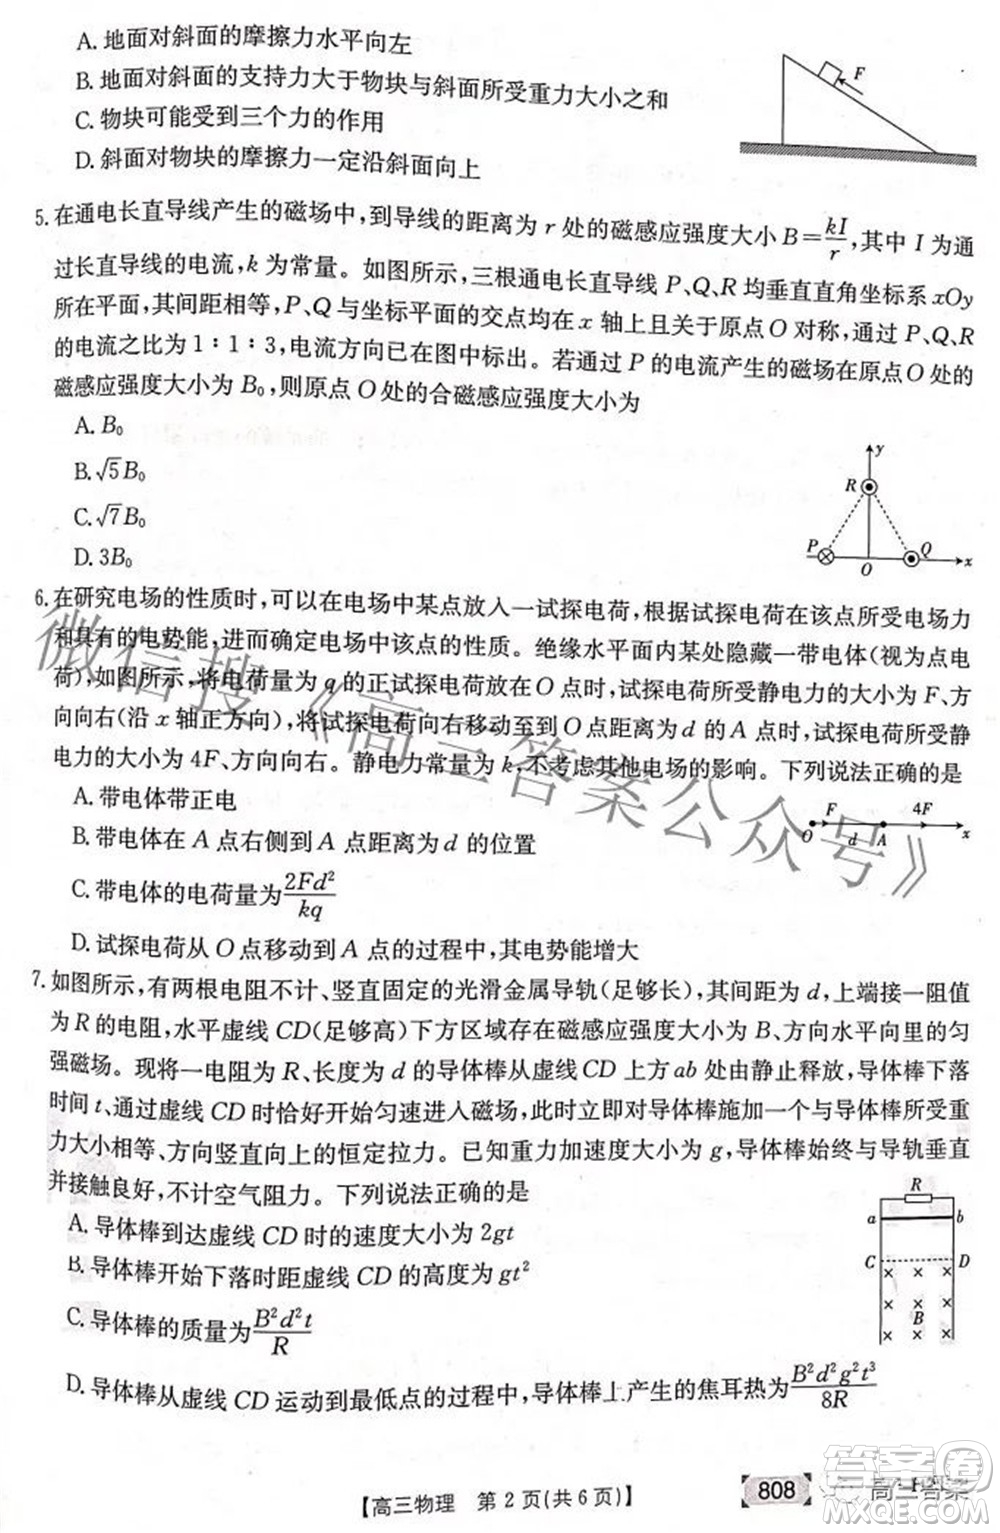 A. 地面对斜面的摩擦力水平向左
B. 地面对斜面的支持力大于物块与斜面所受重力大小之和
C. 物块可能受到三个力的作用
D. 斜面对物块的摩擦力一定沿斜面向上
F
5. 在通电长直导线产生的磁场中,到导线的距离为 r 处的磁感应强度大小 B=kI/r,其中 I 为通
过长直导线的电流,k 为常量。如图所示,三根通电长直导线 P、Q、R 均垂直直角坐标系 xOy
所在平面,其间距相等,P、Q 与坐标平面的交点均在 x 轴上且关于原点 O 对称,通过 P、Q、R
的电流之比为 1∶1∶3,电流方向已在图中标出。若通过 P 的电流产生的磁场在原点O 处的
磁感应强度大小为 B₀,则原点 O 处的合磁感应强度大小为
A. B₀
B. √5B₀
C. √7B₀
D. 3B₀
y
R
P
Q
O
x
6. 在研究电场的性质时,可以在电场中某点放入一试探电荷,根据试探电荷在该点所受电场力
和具有的电势能,进而确定电场中该点的性质。绝缘水平面内某处隐藏一带电体(视为点电
荷),如图所示,将电荷量为 q 的正试探电荷放在 O 点时,试探电荷所受静电力的大小为 F、方
向向右(沿 x 轴正方向),将试探电荷向右移动至到 O 点距离为 d 的 A 点时,试探电荷所受静
电力的大小为 4F、方向向右。静电力常量为 k,不考虑其他电场的影响。下列说法正确的是
A. 带电体带正电
B. 带电体在 A 点右侧到 A 点距离为 d 的位置
C. 带电体的电荷量为2Fd²/kq
D. 试探电荷从 O 点移动到 A 点的过程中,其电势能增大
F
4F
O
d
A
x
7. 如图所示,有两根电阻不计、竖直固定的光滑金属导轨(足够长),其间距为 d,上端接一阻值
为 R 的电阻,水平虚线 CD(足够高)下方区域存在磁感应强度大小为 B、方向水平向里的匀
强磁场。现将一电阻为 R、长度为 d 的导体棒从虚线 CD 上方 ab 处由静止释放,导体棒下落
时间 t、通过虚线 CD 时恰好开始匀速进入磁场,此时立即对导体棒施加一个与导体棒所受重
力大小相等、方向竖直向上的恒定拉力。已知重力加速度大小为 g,导体棒始终与导轨垂直
并接触良好,不计空气阻力。下列说法正确的是
A. 导体棒到达虚线 CD 时的速度大小为 2gt
B. 导体棒开始下落时距虚线 CD 的高度为 gt²
C. 导体棒的质量为B²d²t/R
D. 导体棒从虚线 CD 运动到最低点的过程中,导体棒上产生的焦耳热为B²d²g²t³/8R
R
a
b
C
D
B
【高三物理 第 2 页(共 6 页)】
808
高三答案
答案圈
微信搜《高三答案公众号》